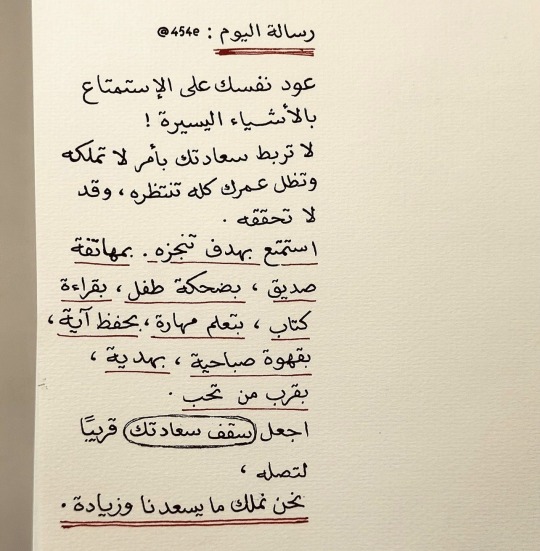 رسالة اليوم : @454e
عود نفسك على الإستمتاع
بالأشياء اليسيرة !
لا تربط سعادتك بأمر لا تملكه
وتظل عمرك كله تنتظره ، وقد
لا تحققه .
استمتع بهدف تنجزه . بمهاتفة
صديق ، بضحكة طفل ، بقراءة
كتاب ، بتعلم مهارة ، بحفظ آية ،
بقهوة صباحية ، بهدية ،
بقرب من تحب .
اجعل سقف سعادتك قريبًا
لتصله ،
نحن نملك ما يسعدنا وزيادة .